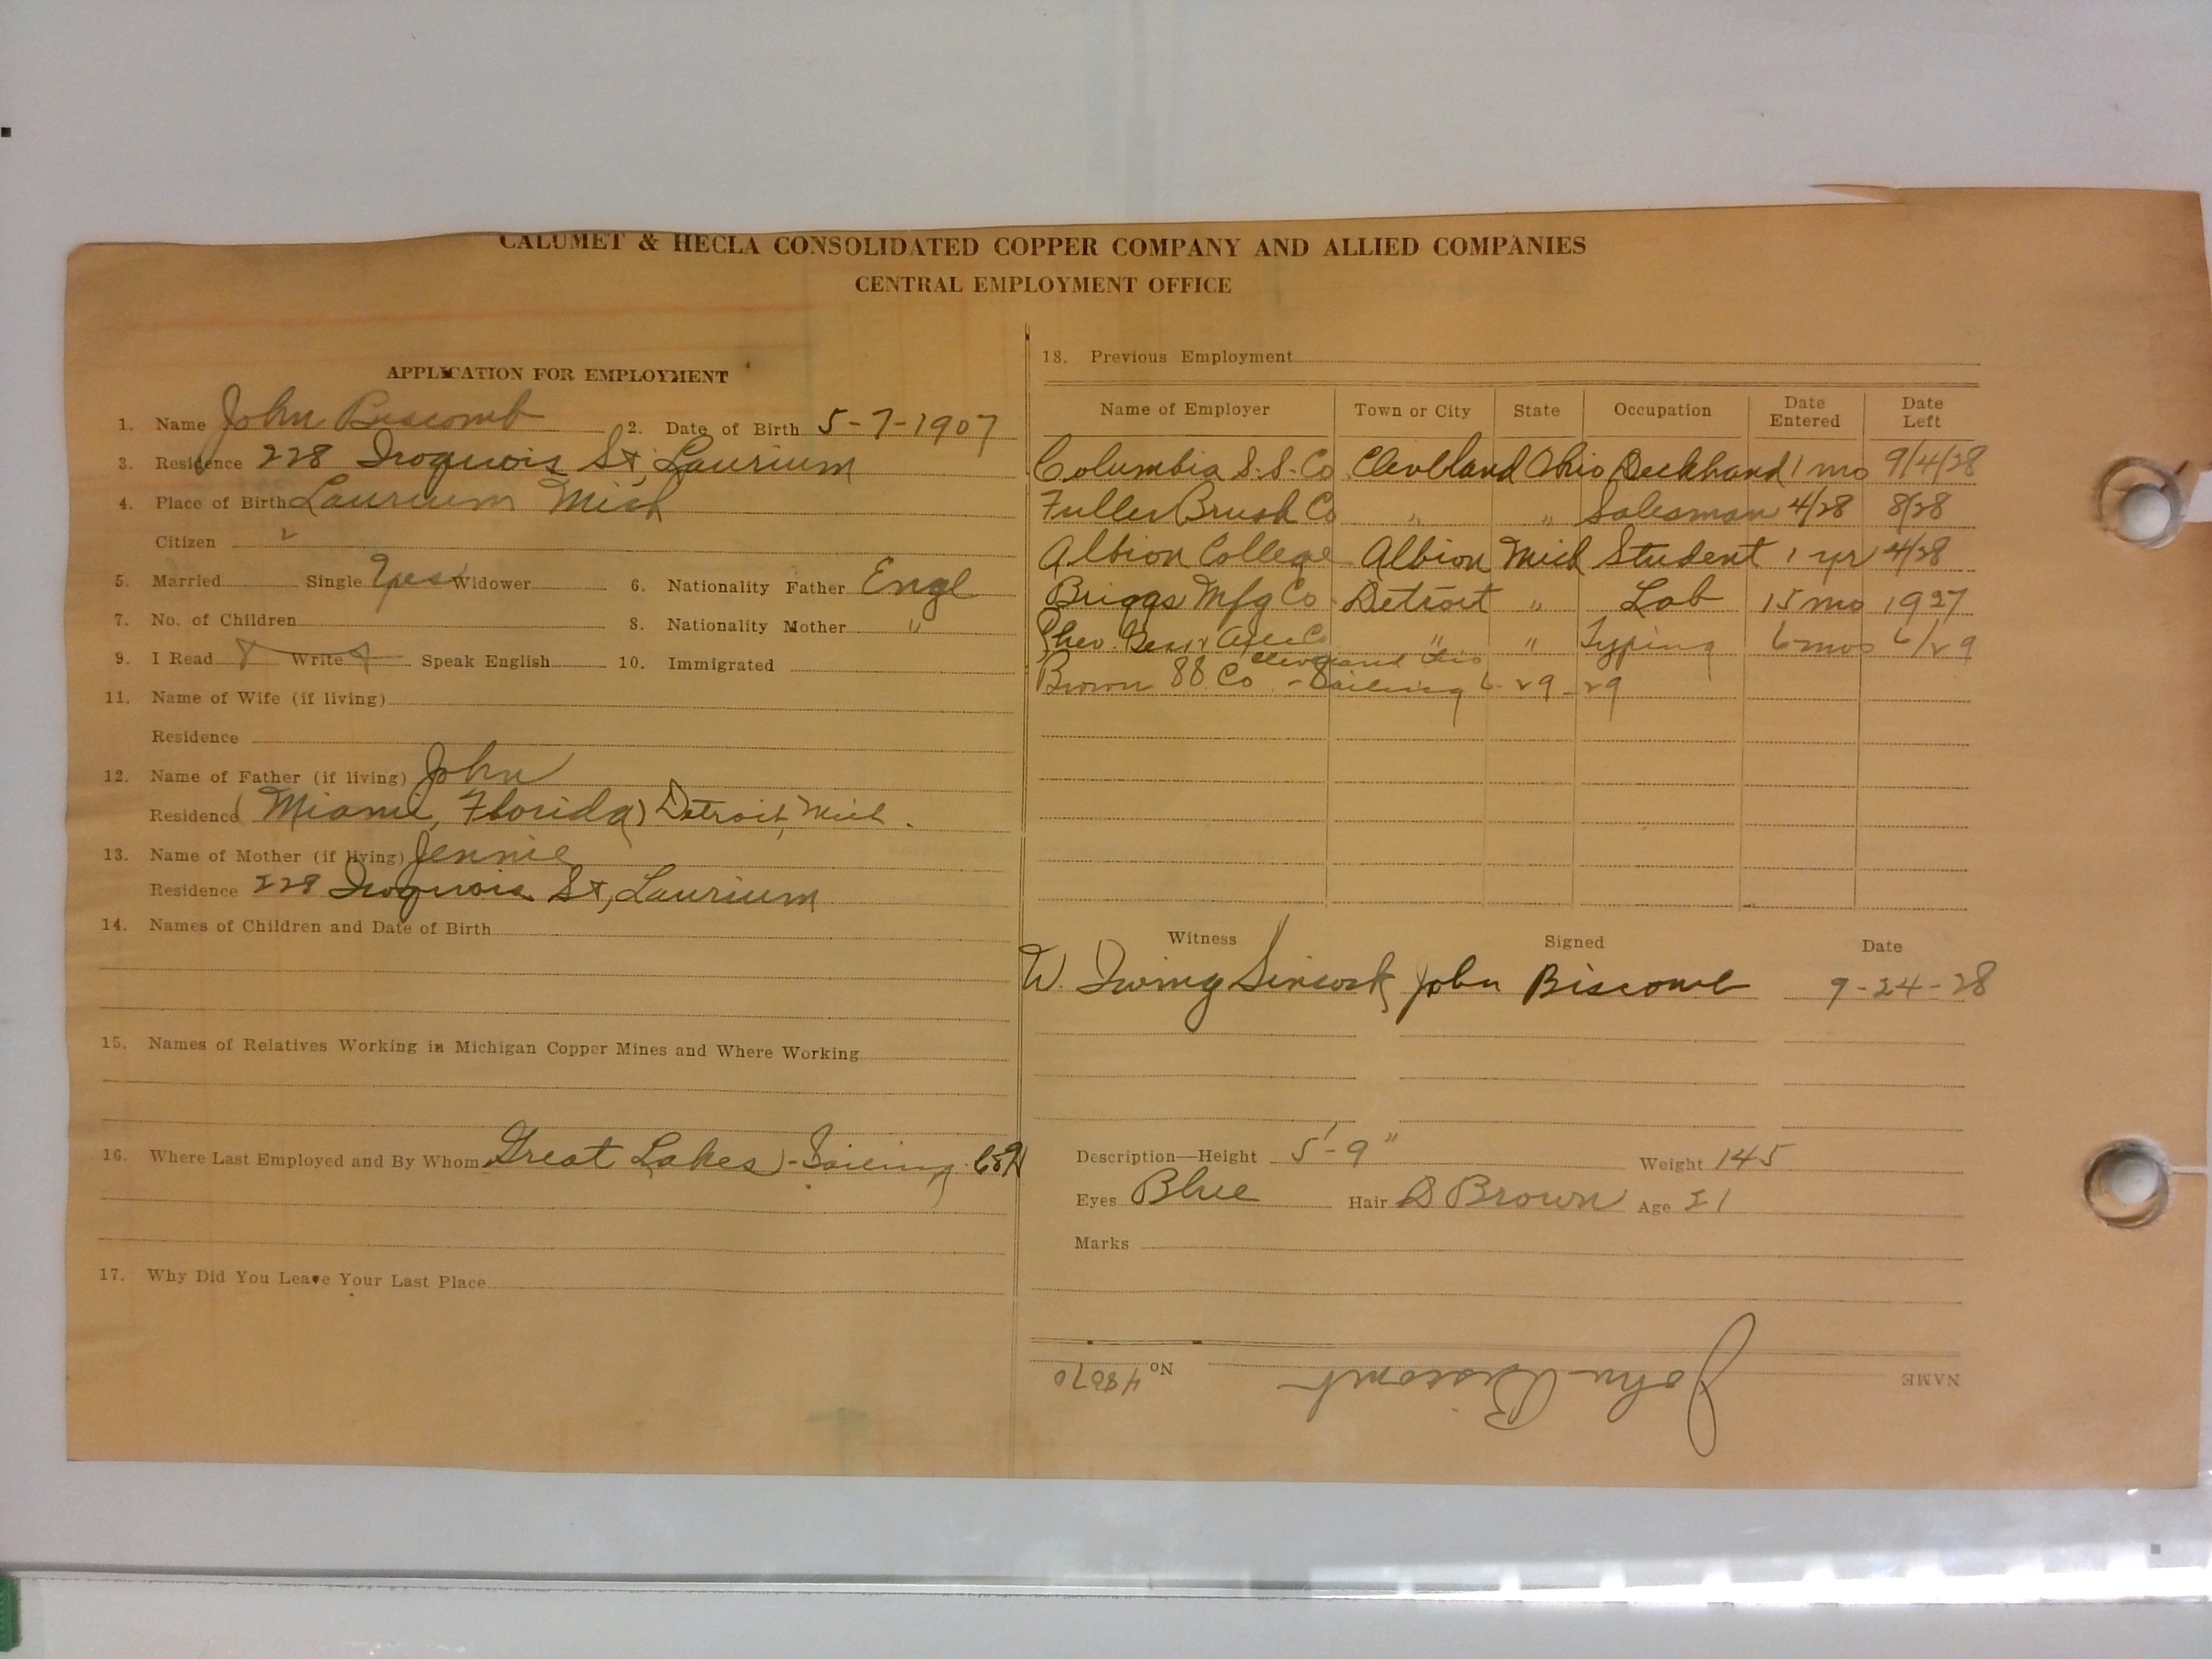 CALUMET & HECLA CONSOLIDATED COPPER COMPANY AND ALLIED COMPANIES
CENTRAL EMPLOYMENT OFFICE
APPLICATION FOR EMPLOYMENT
1. Name John Biscomb 2. Date of Birth 5-7-1907
3. Residence 228 Iroquois St, Laurium
4. Place of Birth Laurium Mich
Citizen
5. Married Single Yes Widower 6. Nationality Father Engl
7. No. of Children 8. Nationality Mother "
9. I Read Write Speak English 10. Immigrated
11. Name of Wife (if living)
Residence
12. Name of Father (if living) John
Residence (Miami, Florida) Detroit, Mich.
13. Name of Mother (if living) Jennie
Residence 228 Iroquois St, Laurium
14. Names of Children and Date of Birth
15. Names of Relatives Working in Michigan Copper Mines and Where Working
16. Where Last Employed and By Whom Great Lakes - Sailing
17. Why Did You Leave Your Last Place
18. Previous Employment
Name of Employer Town or City State Occupation Date Entered Date Left
Columbia S.S. Co Clevelland Ohio Deckhand 1 mo 9/4/28
Fuller Brush Co " " Salesman 4/28 8/28
Albion College Albion Mich Student 1 yr 4/28
Briggs Mfg Co Detroit " Lab 15 mo 1927
" " Typing 6 mos 6/29
Cleveland Ohio
Brown Co - Sailing 6-29-29
Witness Signed Date
W. Irving John Biscomb 9-24-28
Description—Height 5'-9" Weight 145
Eyes Blue Hair D Brown Age 21
Marks
NAME John Biscomb No 48070